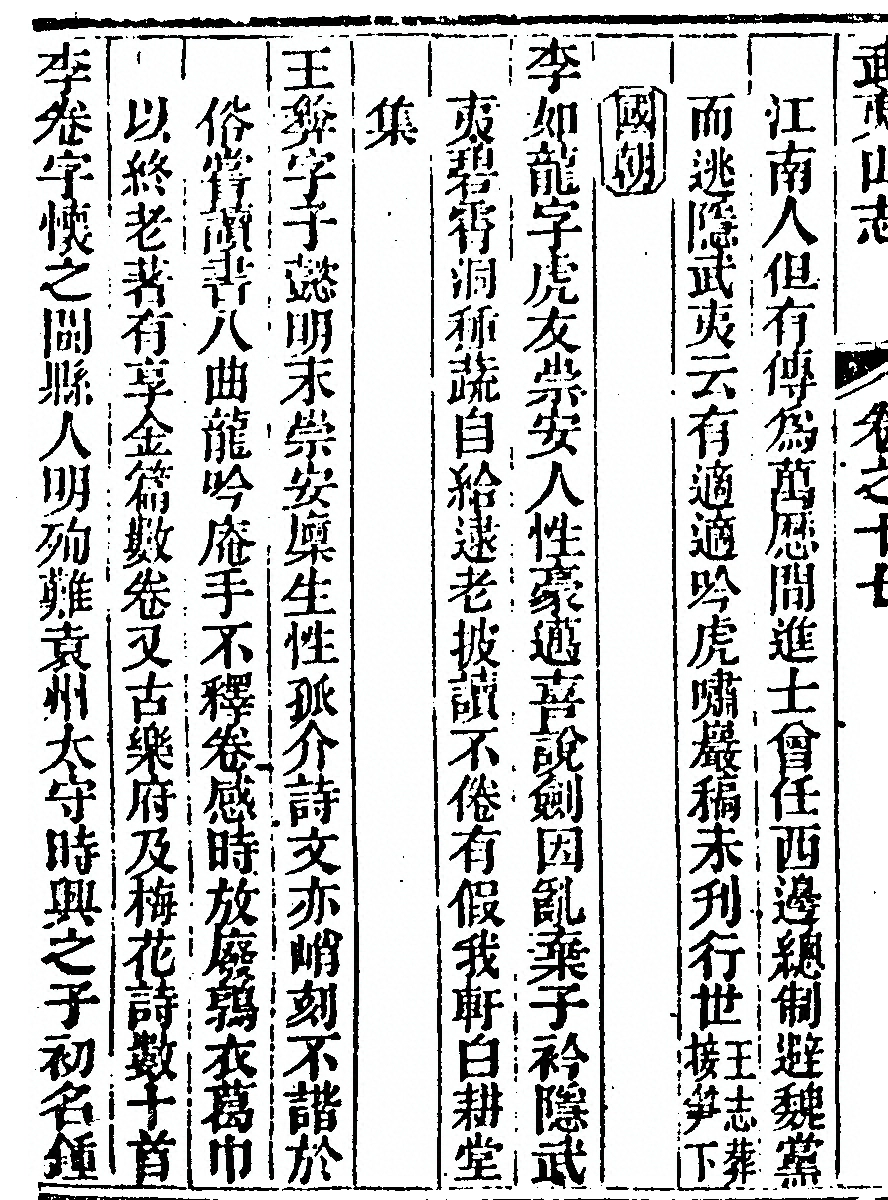 武夷山志 卷之十七
江南人但有傳為萬歷間進士曾任西邊總制避魏黨
而逃隱武夷云有適適吟虎嘯巖稿未刋行世王志葬接笋下
國朝
李如龍字虎友崇安人性豪邁喜說劍因亂棄子衿隱武
夷碧霄洞種蔬自給逮老披讀不倦有假我軒白耕堂
集
王彛字子懿明末崇安廩生性孤介詩文亦峭刻不諧於
俗嘗讀書八曲龍吟庵手不釋卷感時放廢鶉衣葛巾
以終老著有享金篇數卷又古樂府及梅花詩數十首
李卷字懷之閩縣人明殉難袁州太守時興之子初名鍾